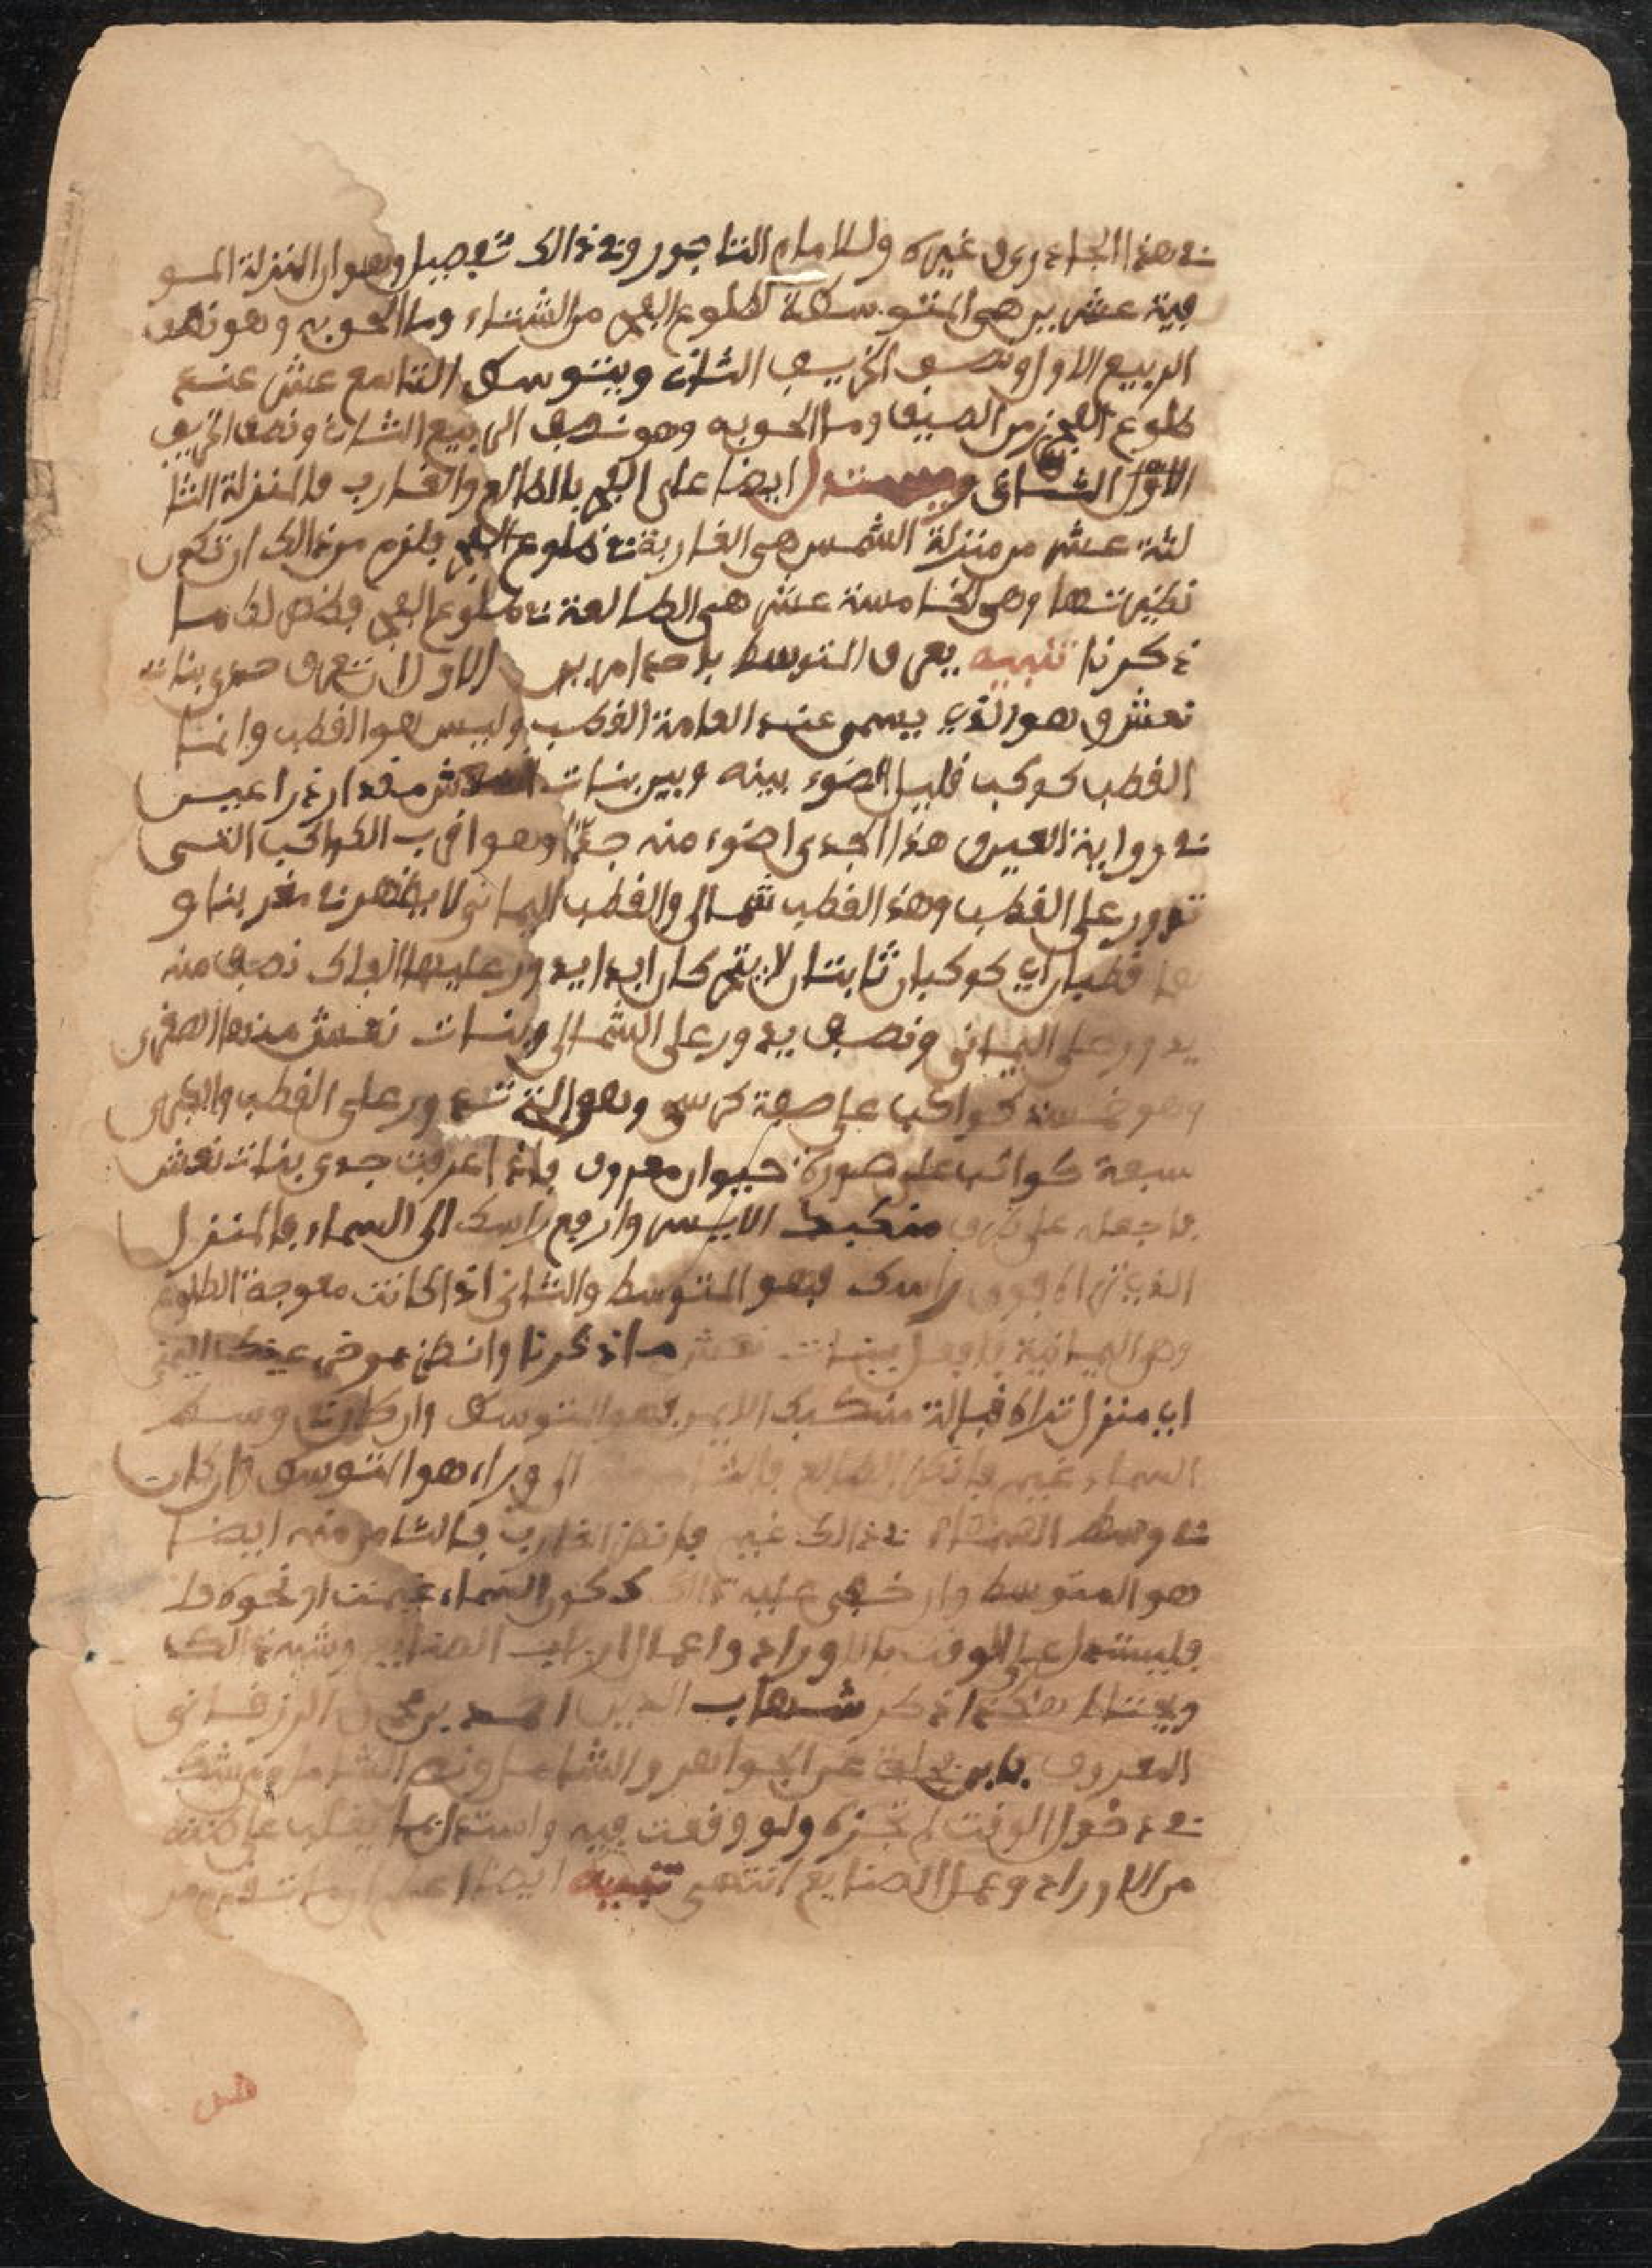 في هذا الجدء دون غيره وللامام التاجوري في ذالك تفصيل وهو ان المنزلة المو
فية عشرين هي المتوسطة لطلوع الفجر من الشتاء وما الحق به وهو نصف
الربيع الاول ونصف الخريف الثاني ويتوسط التاسع عشر عند
طلوع الفجر من الصيف وما الحق به وهو نصف الربيع الثاني ونصف الخريف
الاول ويستدل ايضا على الفجر بالطالع والغارب فالمنزلة الثا
لثة عشر من منزلة الشمس هي الغاربة في طلوع الفجر فلزم من ذالك ان تكون
نظيرتها وهي الخامسة عشر هي الطالعة في طلوع الفجر فظهر لك ما
ذكرنا تنبيه يعرف المتوسط باحد امرين الاول ان تعرف جدي بنات
نعش وهو الذي يسمى عند العامة القطب وليس هو القطب وانما
القطب كوكب قليل الضوء بينه وبين بنات مقدار ذراعين
في رواية العين وهذا الجدي اضوء منه جدا وهو اقرب الكواكب التي
تدور على القطب وهذا القطب شمالي والقطب اليماني لا يظهر في مغربنا و
هما قطبان اي كوكبان ثابتان لا يتحركان ابدا يدور عليهما الفلك نصف منه
يدور على اليماني ونصف يدور على الشمالي وبنات نعش منها الصغرى
وهو خمسة كواكب على صفة كرسي وهو التي تدور على القطب والكبرى
سبعة كواكب على صورة حيوان معروف فاذا عرفت جدي بنات نعش
فاجعله على طرف منكبك الايسر وارفع راسك الى السماء فالمنزل
الذي تراه فوق راسك فهو المتوسط والثاني اذا كانت معوجة الطلوع
وهي اليمانية فافعل ببنات نعش ما ذكرنا وانظر عينك اليمنى
اي منزل تراه قبالة منكبك الايمن فهو المتوسط وان كان في وسط
السماء غيم فانظر الطالع فالثامن الى وراء هو المتوسط وان كان
في وسط السماء في ذالك غيم فانظر الغارب فالثامن منه ايضا
هو المتوسط وان خفي عليه ذالك ككون السماء غيمت او نحوه
فليستدل على الوقت بالاوراد واعمال ارباب الصنايع وشبه ذالك
شهاب الدين احمد بن الزرقاني
المعروف بابن عن الجواهر من شك
في دخول الوقت لم تجزه ولو وقعت فيه واستدل بما يغلب على ظنه
من الاوراد وعمل الصنايع انتهى تنبيه ايضا اعلم ان ما تقدم من